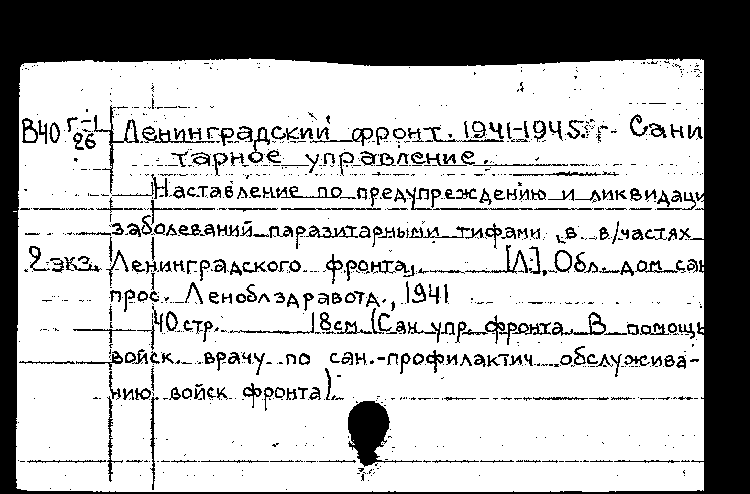 В40 г-1/26 Ленинградский фронт. 1941-1945 гг. Сани
тарное управление.
Наставление по предупреждению и ликвидаци
заболеваний паразитарными тифами в в/частях
2 экз. Ленинградского фронта, [Л.], Обл. дом сан
прос. Леноблздравотд., 1941
40 стр. 18 см. (Сан. упр. фронта. В помощь
войск. врачу по сан.-профилактич обслужива-
нию войск фронта).